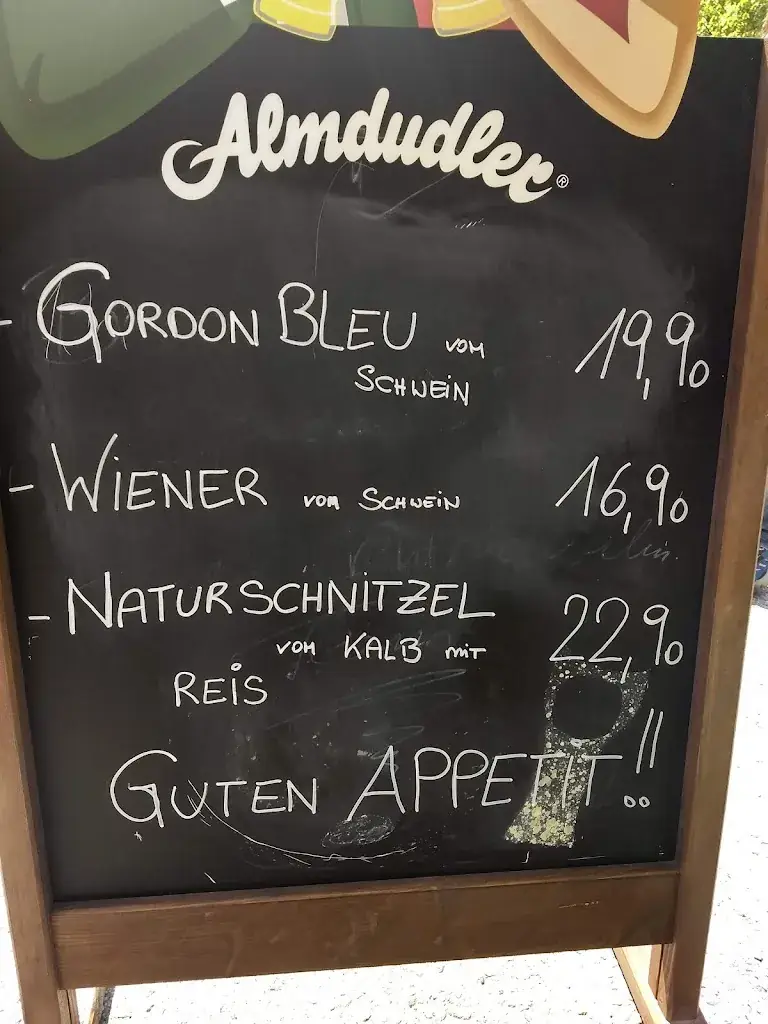 Almdudler®
- GORDON BLEU vom 19,90
SCHWEIN
- WIENER vom SCHWEIN 16,90
- NATURSCHNITZEL 22,90
vom KALB mit
REIS
GUTEN APPETIT!!